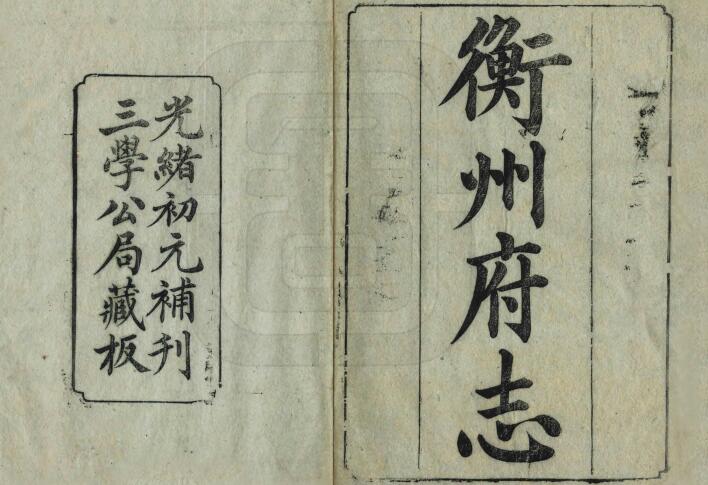 衡州府志
光緒初元補刊
三學公局藏板